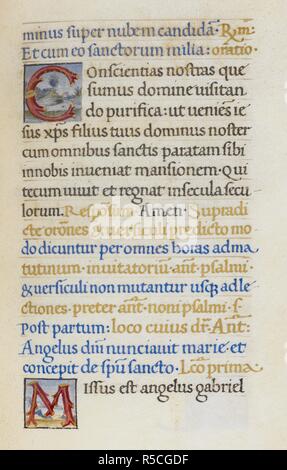 minus super nubem candidã. Rm:
Et cum eo sanctorum milia: oratio.
Conscientias nostras que
sumus domine visitan
do purifica: ut venies ie
sus xps filius tuus dominus noster
cum omnibus sanctis paratam sibi
in nobis inveniat mansionem. Qui
tecum vivit et regnat in secula secu
lorum. Responsum Amen. Supradi
cte orones & versiculi predicto mo
do dicuntur per omnes horas ad ma
tutinum. invitatoriũ. ant. psalmi.
& versiculi non mutantur usq; ad le
ctiones. preter ant. noni psalmi. s.
Post partum: loco cuius dr. Ant:
Angelus dni nunciavit marie. et
concepit de spu sancto. Lco prima
Missus est angelus gabriel
alamy
www.alamy.com
Image ID: R5CGDF